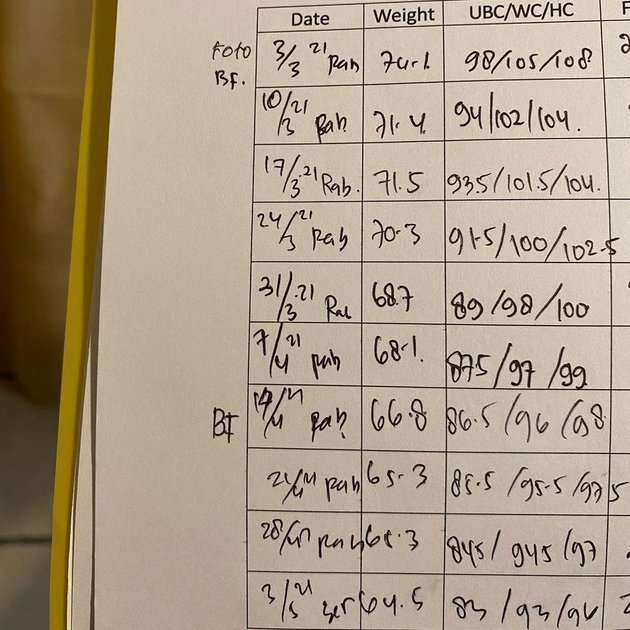 Date Weight UBC/WC/HC F
Foto 3/3 21 Rab 74.1 98/105/108 2
Bf.
10/3 21 Rab 71.4 94/102/104.
17/3.21 Rab. 71.5 93.5/101.5/104.
24/3 21 Rab 70.3 91.5/100/102.5
31/3.21 Ral 68.7 89/98/100
7/4 21 Rab 68.1. 87.5/97/99
BI 14/4 21 Rab 66.8 86.5/96/98
21/4 21 Rab 65.3 85.5/95.5/97.5
28/4 21 Rab 65.3 84.5/94.5/97
3/5 21 Ser 64.5 83/93/96